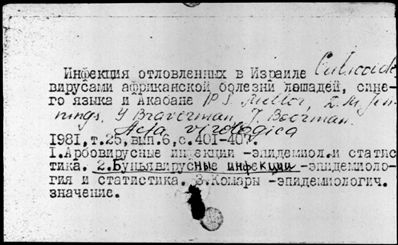 Инфекция отловленных в Израиле Culicoides
вирусами африканской болезни лошадей, сине-
го языка и Акабане P.S. Mellor, L. M. Jen-
nings, Y Braverman, J. Boorman.
Acta virologica
1981, т.25, вып.6, с.401-407.
1.Арбовирусные инфекции -эпидемиол.и статис
тика. 2.Буньявирусные инфекции -эпидемиоло-
гия и статистика. 3.Комары -эпидемиологич.
значение.